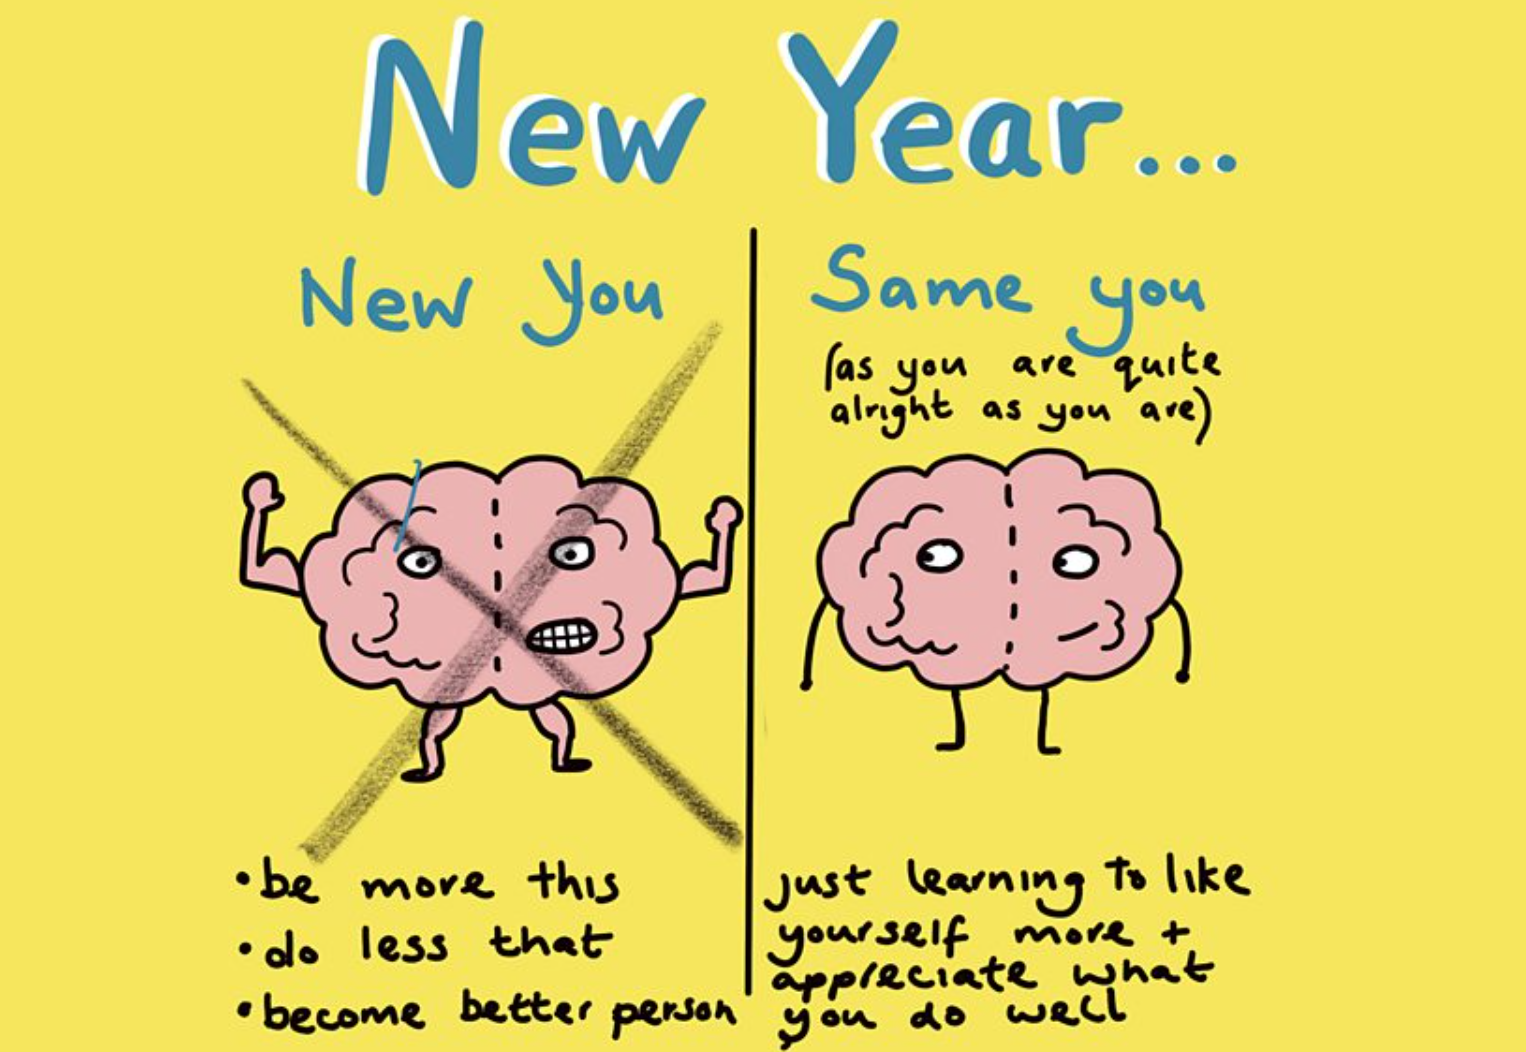 New Year...
New You
• be more this
• do less that
• become better person
Same you
(as you are quite
alright as you are)
just learning to like
yourself more +
appreciate what
you do well